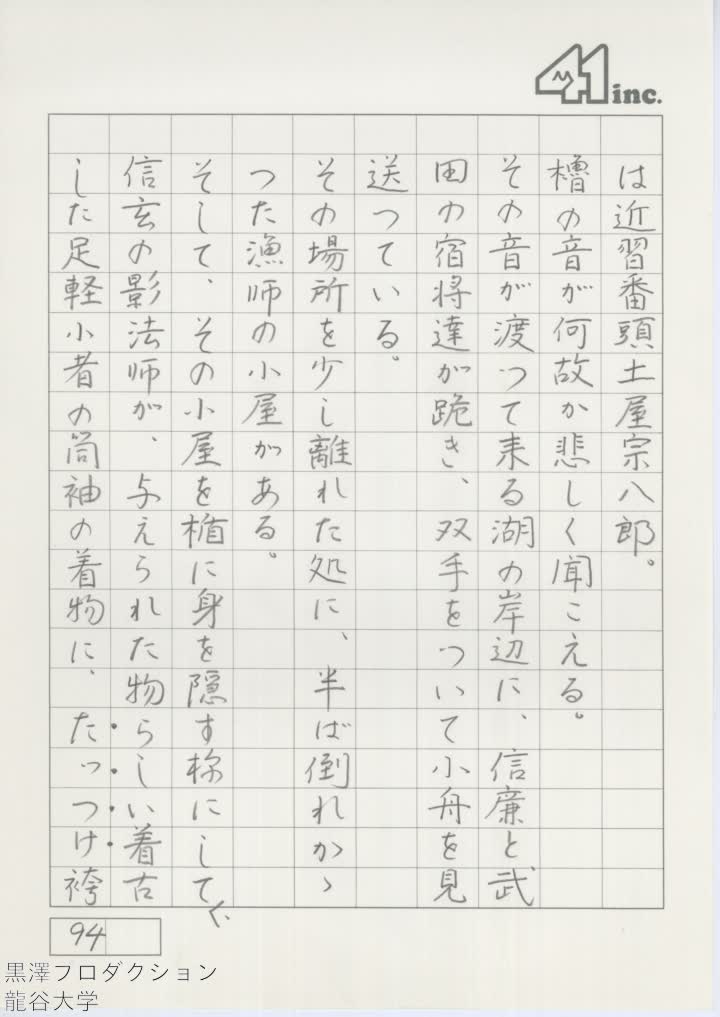 41 inc.
は近習番頭土屋宗八郎。
櫓の音が何故か悲しく聞こえる。
その音が渡って来る湖の岸辺に、信廉と武
田の宿将達が跪き、双手をついて小舟を見
送っている。
その場所を少し離れた処に、半ば倒れかゝ
った漁師の小屋がある。
そして、その小屋を楯に身を隠す様にして、
信玄の影法師が、与えられた物らしい着古
した足軽小者の筒袖の着物に、たっつけ袴
94
黒澤プロダクション
龍谷大学